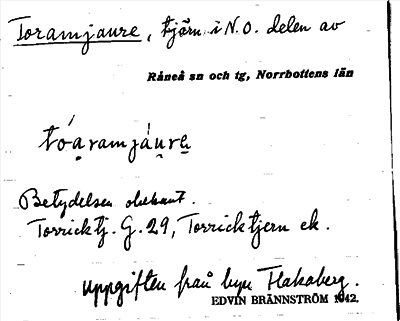 Toramjaure, tjärn i N.O. delen av
Råneå sn och tg, Norrbottens län
tóaramjáure
Betydelsen obekant.
Torricktj. G. 29, Torricktjern ek.
Uppgiften från byn Flakaberg.
EDVIN BRÄNNSTRÖM 1942.